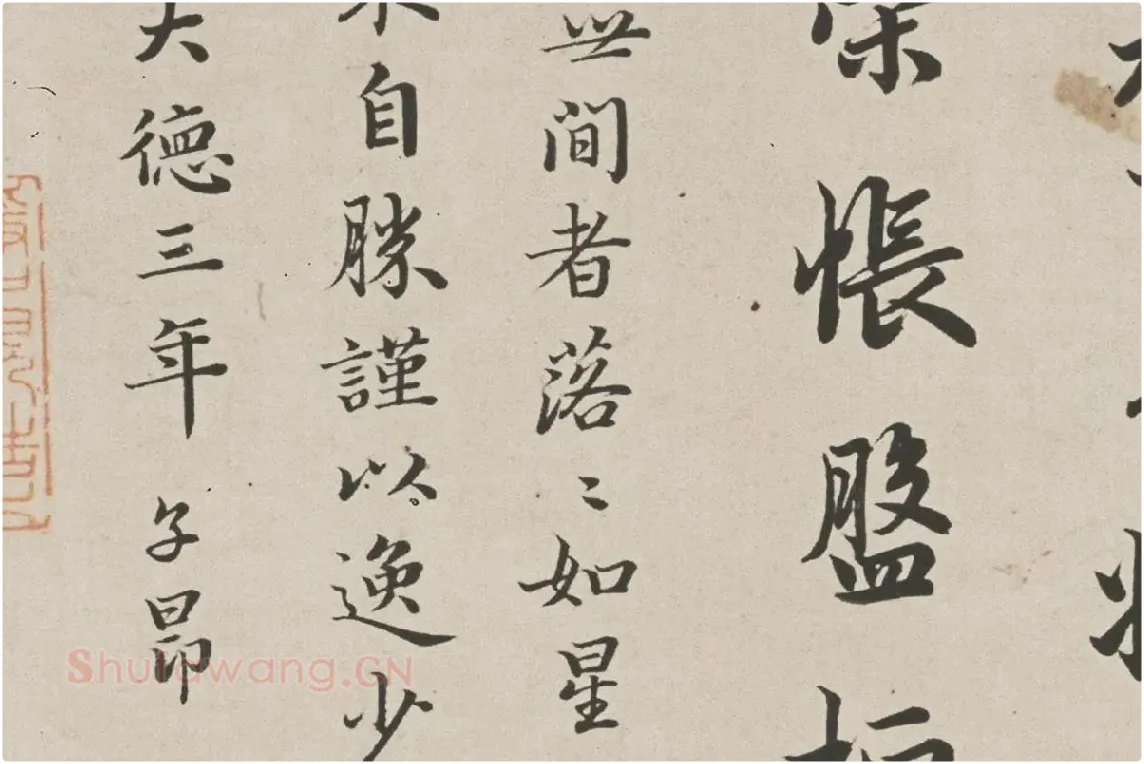 悵盤桓
世間者落〻如星
自勝謹以逸少
大德三年 子昂
Shufawang.CN